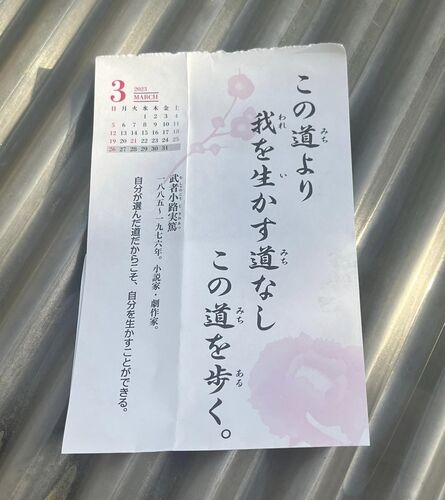 この道より
我を生かす道なし
この道を歩く。
3
2023
MARCH
日 月 火 水 木 金 土
1 2 3 4
5 6 7 8 9 10 11
12 13 14 15 16 17 18
19 20 21 22 23 24 25
26 27 28 29 30 31
武者小路実篤
一八八五～一九七六年。小説家・劇作家。
自分が選んだ道だからこそ、自分を生かすことができる。